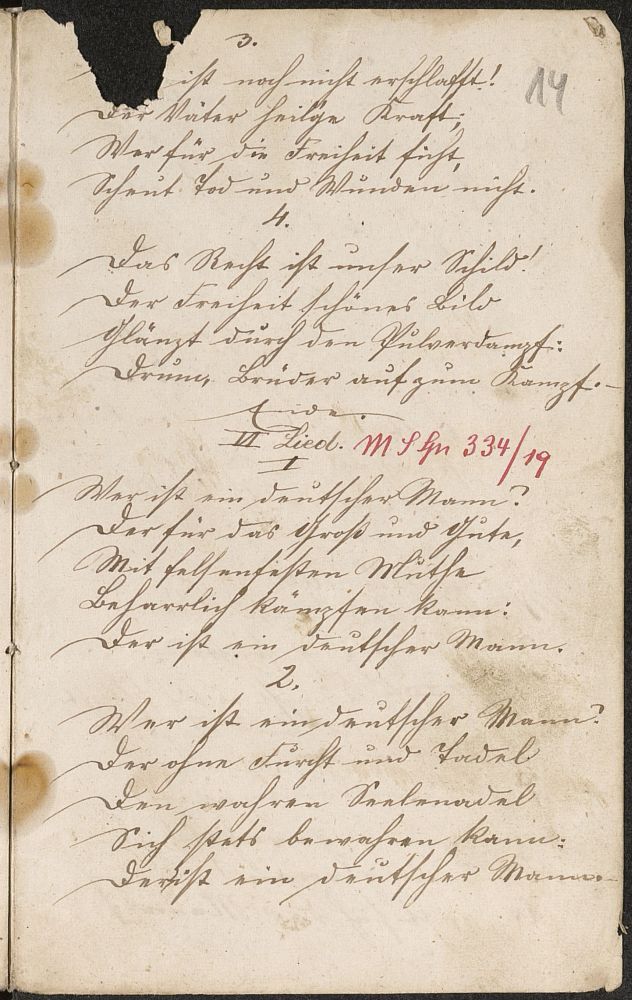 3.
ist noch nicht erschlafft!
14
Der Väter heil'ge Kraft;
Wer für die Freiheit ficht,
Scheut Tod und Wunden nicht.
4.
Das Recht ist unser Schild!
Der Freiheit schönes Bild
Glänzt durch den Pulverdampf:
Drum, Brüder auf zum Kampf.
Ende.
VI Lied.
M S Gn 334/19
1
Wer ist ein deutscher Mann?
Der für das Groß und Gute,
Mit felsenfesten Muthe
Beharrlich kämpfen kann:
Der ist ein deutscher Mann.
2.
Wer ist ein deutscher Mann?
Der ohne Furcht und Tadel
Den wahren Seelenadel
Sich stets bewahren kann:
Der ist ein deutscher Mann.